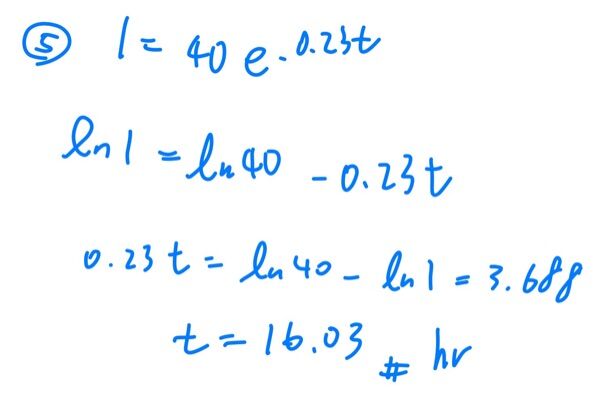 ⑤ 1 = 40 e^-0.23t
ln 1 = ln 40 - 0.23 t
0.23 t = ln 40 - ln 1 = 3.688
t = 16.03 # hr